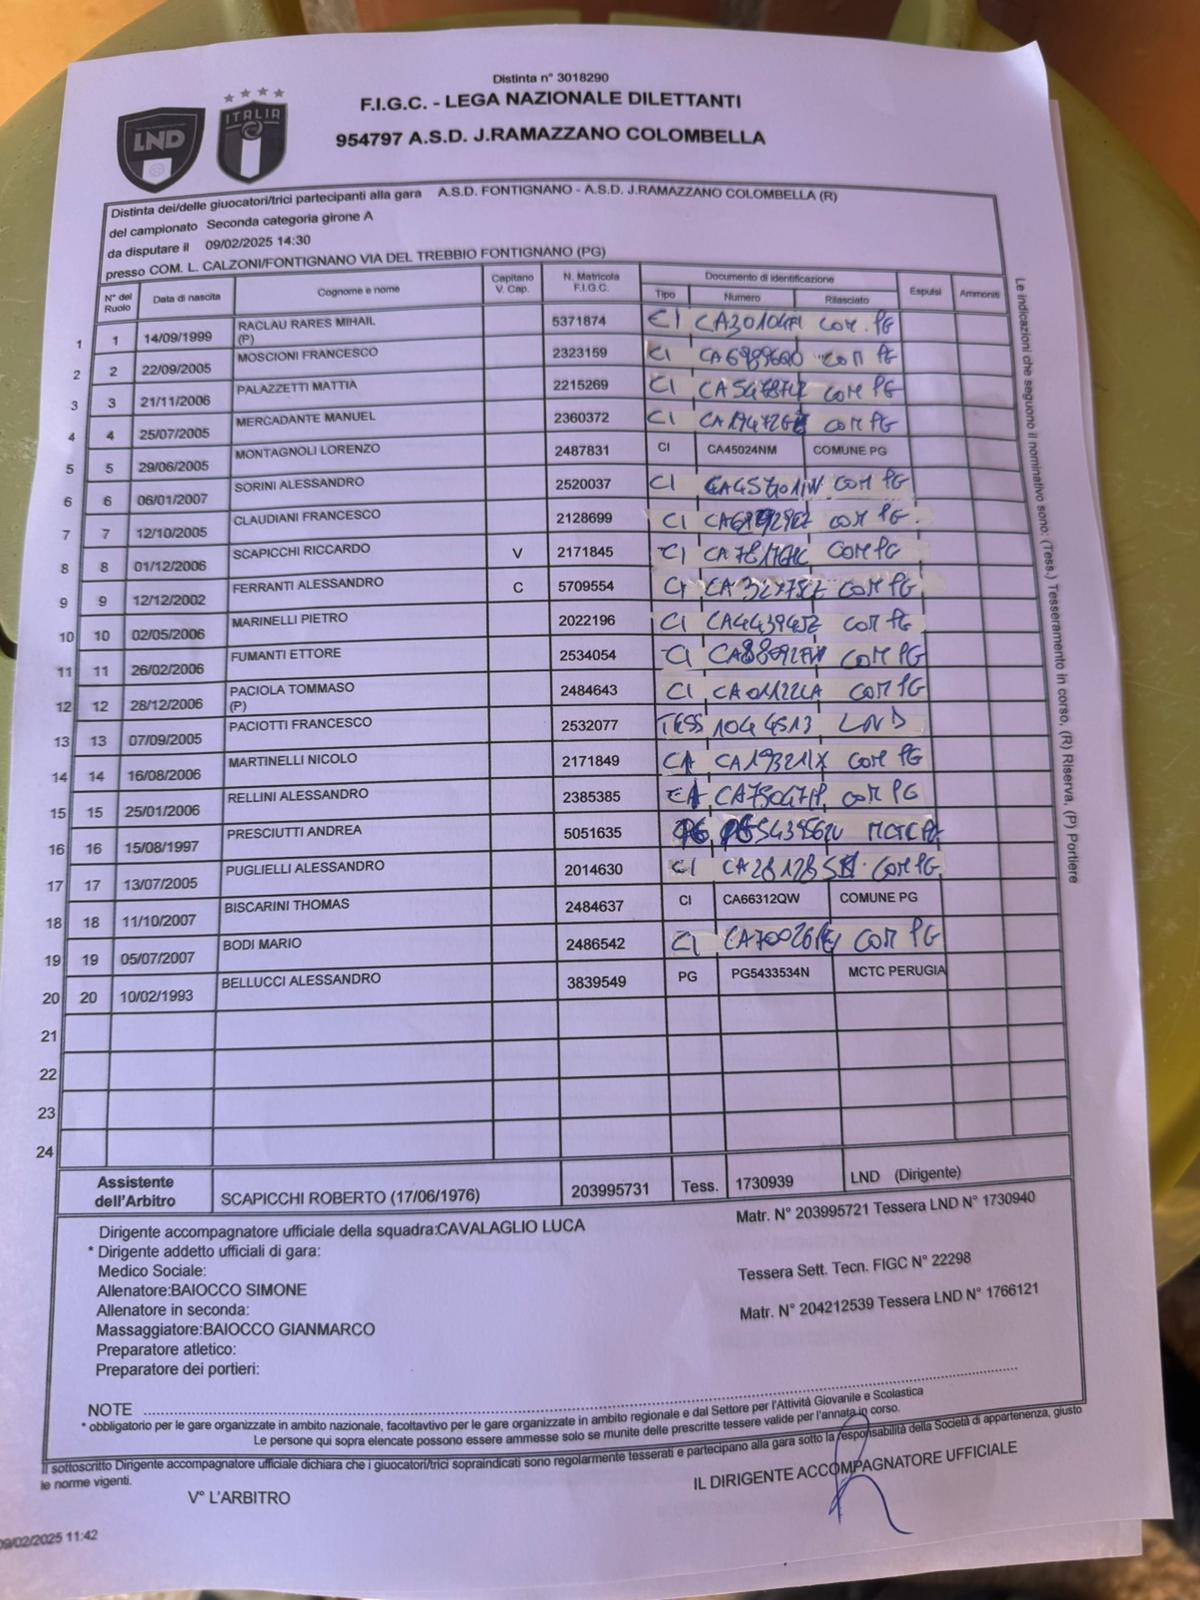 Distinta n° 3018290
F.I.G.C. - LEGA NAZIONALE DILETTANTI
954797 A.S.D. J.RAMAZZANO COLOMBELLA
LND
ITALIA
Distinta dei/delle giuocatori/trici partecipanti alla gara A.S.D. FONTIGNANO - A.S.D. J.RAMAZZANO COLOMBELLA (R)
del campionato Seconda categoria girone A
da disputare il 09/02/2025 14:30
presso COM. L. CALZONI/FONTIGNANO VIA DEL TREBBIO FONTIGNANO (PG)
N° del Ruolo Data di nascita Cognome e nome Capitano V. Cap. N. Matricola F.I.G.C. Documento di identificazione Espulsi Ammoniti
Tipo Numero Rilasciato
1 1 14/09/1999 RACLAU RARES MIHAIL (P) 5371874 CI COM. PG
2 2 22/09/2005 MOSCIONI FRANCESCO 2323159 CI COM PG
3 3 21/11/2006 PALAZZETTI MATTIA 2215269 CI COM PG
4 4 25/07/2005 MERCADANTE MANUEL 2360372 CI COM PG
5 5 29/06/2005 MONTAGNOLI LORENZO 2487831 CI CA45024NM COMUNE PG
6 6 06/01/2007 SORINI ALESSANDRO 2520037 CI COM PG
7 7 12/10/2005 CLAUDIANI FRANCESCO 2128699 CI COM PG.
8 8 01/12/2006 SCAPICCHI RICCARDO V 2171845 CI COM PG
9 9 12/12/2002 FERRANTI ALESSANDRO C 5709554 CI COM PG
10 10 02/05/2006 MARINELLI PIETRO 2022196 CI COM PG
11 11 26/02/2006 FUMANTI ETTORE 2534054 CI COM PG
12 12 28/12/2006 PACIOLA TOMMASO (P) 2484643 CI COM PG
13 13 07/09/2005 PACIOTTI FRANCESCO 2532077 TESS 1044513 LND
14 14 16/08/2006 MARTINELLI NICOLO 2171849 CA CA19321IX COM PG
15 15 25/01/2006 RELLINI ALESSANDRO 2385385 COM PG
16 16 15/08/1997 PRESCIUTTI ANDREA 5051635
17 17 13/07/2005 PUGLIELLI ALESSANDRO 2014630 CI COM PG.
18 18 11/10/2007 BISCARINI THOMAS 2484637 CI CA66312QW COMUNE PG
19 19 05/07/2007 BODI MARIO 2486542 CI COM PG
20 20 10/02/1993 BELLUCCI ALESSANDRO 3839549 PG PG5433534N MCTC PERUGIA
21
22
23
24
Le indicazioni che seguono il nominativo sono: (Tess.) Tesseramento in corso, (R) Riserva, (P) Portiere
Assistente dell'Arbitro SCAPICCHI ROBERTO (17/06/1976) 203995731 Tess. 1730939 LND (Dirigente)
Dirigente accompagnatore ufficiale della squadra:CAVALAGLIO LUCA Matr. N° 203995721 Tessera LND N° 1730940
* Dirigente addetto ufficiali di gara:
Medico Sociale:
Allenatore:BAIOCCO SIMONE Tessera Sett. Tecn. FIGC N° 22298
Allenatore in seconda:
Massaggiatore:BAIOCCO GIANMARCO Matr. N° 204212539 Tessera LND N° 1766121
Preparatore atletico:
Preparatore dei portieri:
NOTE
* obbligatorio per le gare organizzate in ambito nazionale, facoltavtivo per le gare organizzate in ambito regionale e dal Settore per l'Attività Giovanile e Scolastica
Le persone qui sopra elencate possono essere ammesse solo se munite delle prescritte tessere valide per l'annata in corso.
Il sottoscritto Dirigente accompagnatore ufficiale dichiara che i giuocatori/trici sopraindicati sono regolarmente tesserati e partecipano alla gara sotto la responsabilità della Società di appartenenza, giusto
le norme vigenti.
V° L'ARBITRO IL DIRIGENTE ACCOMPAGNATORE UFFICIALE
09/02/2025 11:42